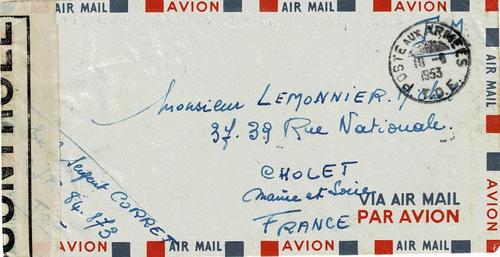 AIR MAIL AVION AIR MAIL AVION AIR MAIL AVION
F M
POSTE AUX ARMEES
1953
T.O.E.
CONTROLE
Monsieur LEMONNIER
37.39 Rue Nationale.
CHOLET
Maine et Loire
FRANCE
VIA AIR MAIL
PAR AVION
Sergent CORRET
84.873
AIR MAIL
AVION
AVION AIR MAIL AVION AIR MAIL AVION